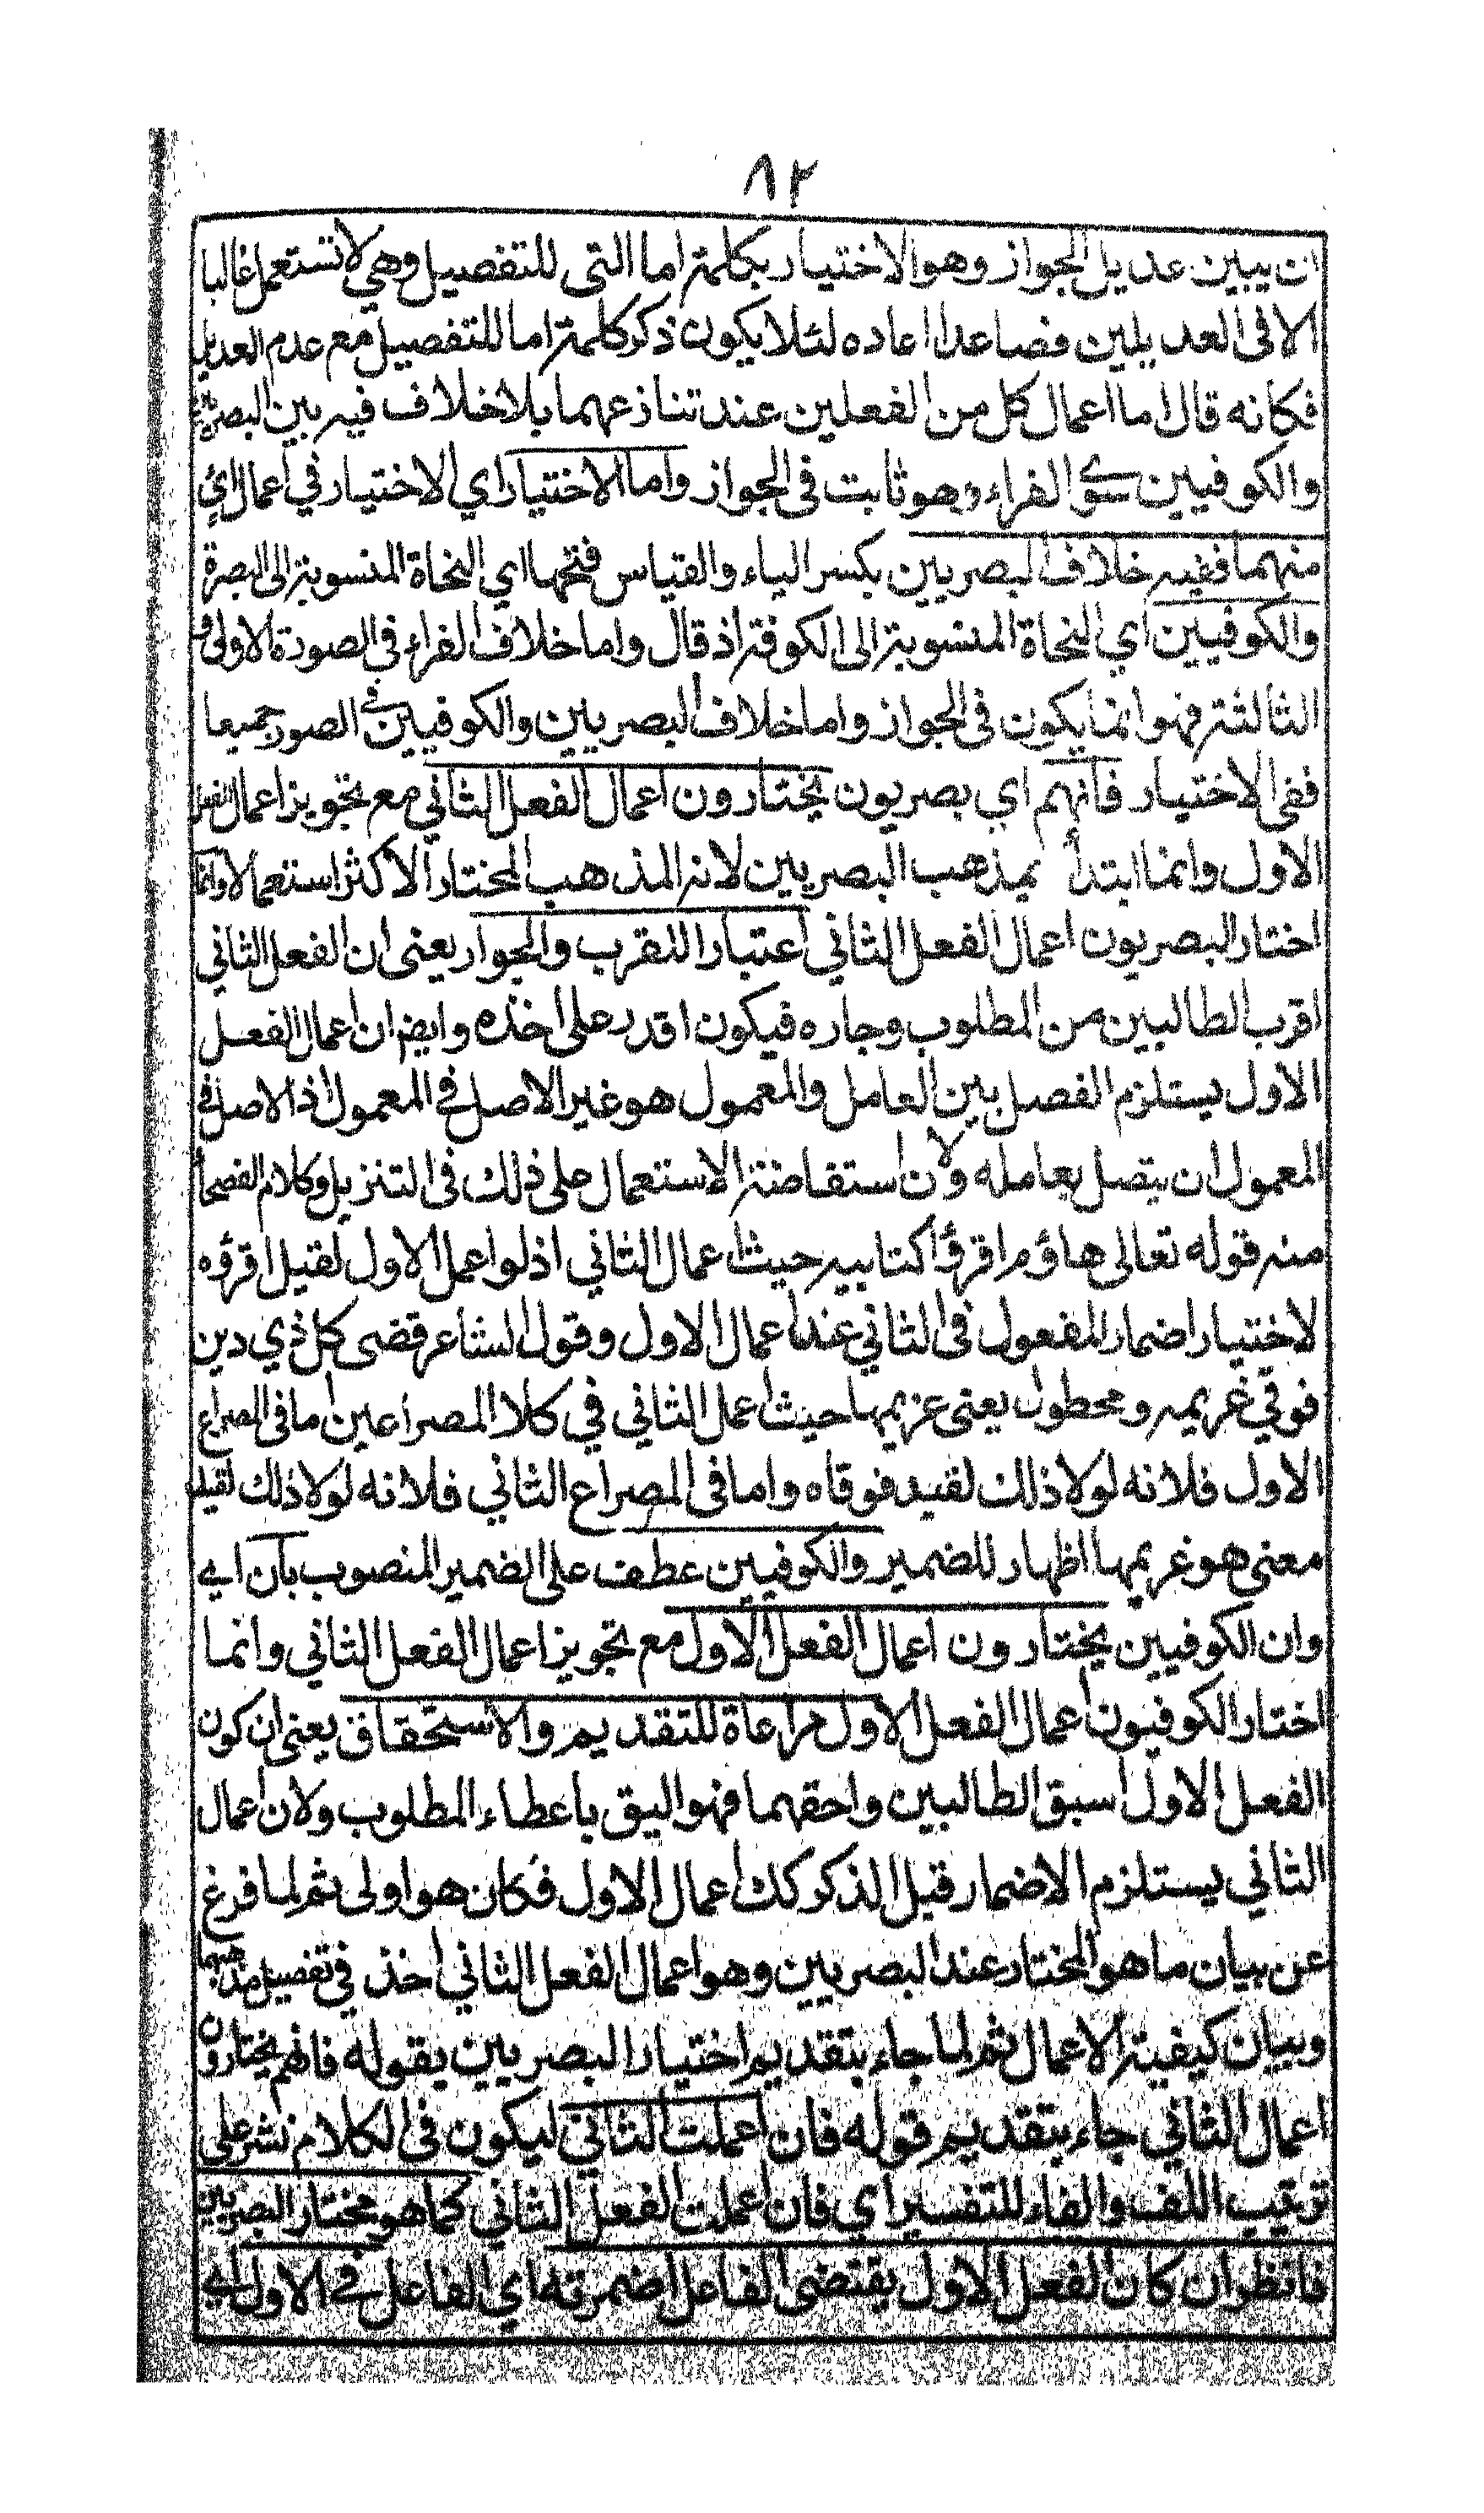 ٨٢
ان يبين عديل الجواز وهو الاختيار بكلمة اما التى للتفصيل وهي لا تستعمل غالبا
الا فى العديلين فصاعدا اعاده لئلا يكون ذكر كلمة اما للتفصيل مع عدم العديل
فكانه قال اما اعمال كل من الفعلين عند تنازعهما بلا خلاف فيه بين البصريين
والكوفيين سوى الفراء وهو ثابت فى الجواز واما الاختيار اي الاختيار في اعمال اي
منهما ففيه خلاف البصريين بكسر الباء والقياس فتحها اي النحاة المنسوبة الى البصرة
والكوفيين اي النحاة المنسوبة الى الكوفة اذ قال واما خلاف الفراء فى الصورة الاولى و
الثالثة فهو انما يكون فى الجواز واما خلاف البصريين والكوفيين فى الصور جميعا
ففى الاختيار فانهم اي بصريون يختارون اعمال الفعل الثاني مع تجويز اعمال الفعل
الاول وانما ابتدأ بمذهب البصريين لانه المذهب المختار الاكثر استعمالا وانما
اختار البصريون اعمال الفعل الثاني اعتبارا للقرب والجوار يعنى ان الفعل الثاني
اقرب الطالبين من المطلوب وجاره فيكون اقدر على اخذه وايضا ان اعمال الفعل
الاول يستلزم الفصل بين العامل والمعمول هو غير الاصل فى المعمول اذ الاصل فى
المعمول ان يتصل بعامله ولان استفاضة الاستعمال على ذلك فى التنزيل وكلام الفصحاء
منه قوله تعالى هاؤم اقرؤا كتابيه حيث اعمال الثاني اذ لو اعمل الاول لقيل اقرؤه
لاختيار اضمار المفعول فى الثاني عند اعمال الاول وقول الشاعر قضى كل ذي دين
فوقي غريمه وممطول يعنى غريمها حيث اعمل الثاني في كلا المصراعين اما فى المصراع
الاول فلانه لولا ذلك لقيد فوقاه واما فى المصراع الثاني فلانه لولا ذلك لقيل
معنى هو غريمها اظهار للضمير والكوفيين عطف على الضمير المنصوب بان اي
وان الكوفيين يختارون اعمال الفعل الاول مع تجويز اعمال الفعل الثاني وانما
اختار الكوفيون اعمال الفعل الاول مراعاة للتقديم والاستحقاق يعنى ان كون
الفعل الاول اسبق الطالبين واحقهما فهو اليق باعطاء المطلوب ولان اعمال
الثاني يستلزم الاضمار قبل الذكر كك اعمال الاول فكان هو اولى ثم لما فرغ
عن بيان ما هو المختار عند البصريين وهو اعمال الفعل الثاني اخذ في تفصيل مذهبهما
وبيان كيفية الاعمال ثم لما جاء بتقديم اختيار البصريين بقوله فانهم يختارون
اعمال الثاني جاء بتقديم قوله فان اعملت الثاني ليكون فى الكلام نشر على
ترتيب اللف والفاء للتفسير اي فان اعملت الفعل الثاني كما هو مختار البصريين
فانظر ان كان الفعل الاول يقتضى الفاعل اضمرته اي الفاعل فى الاول اي